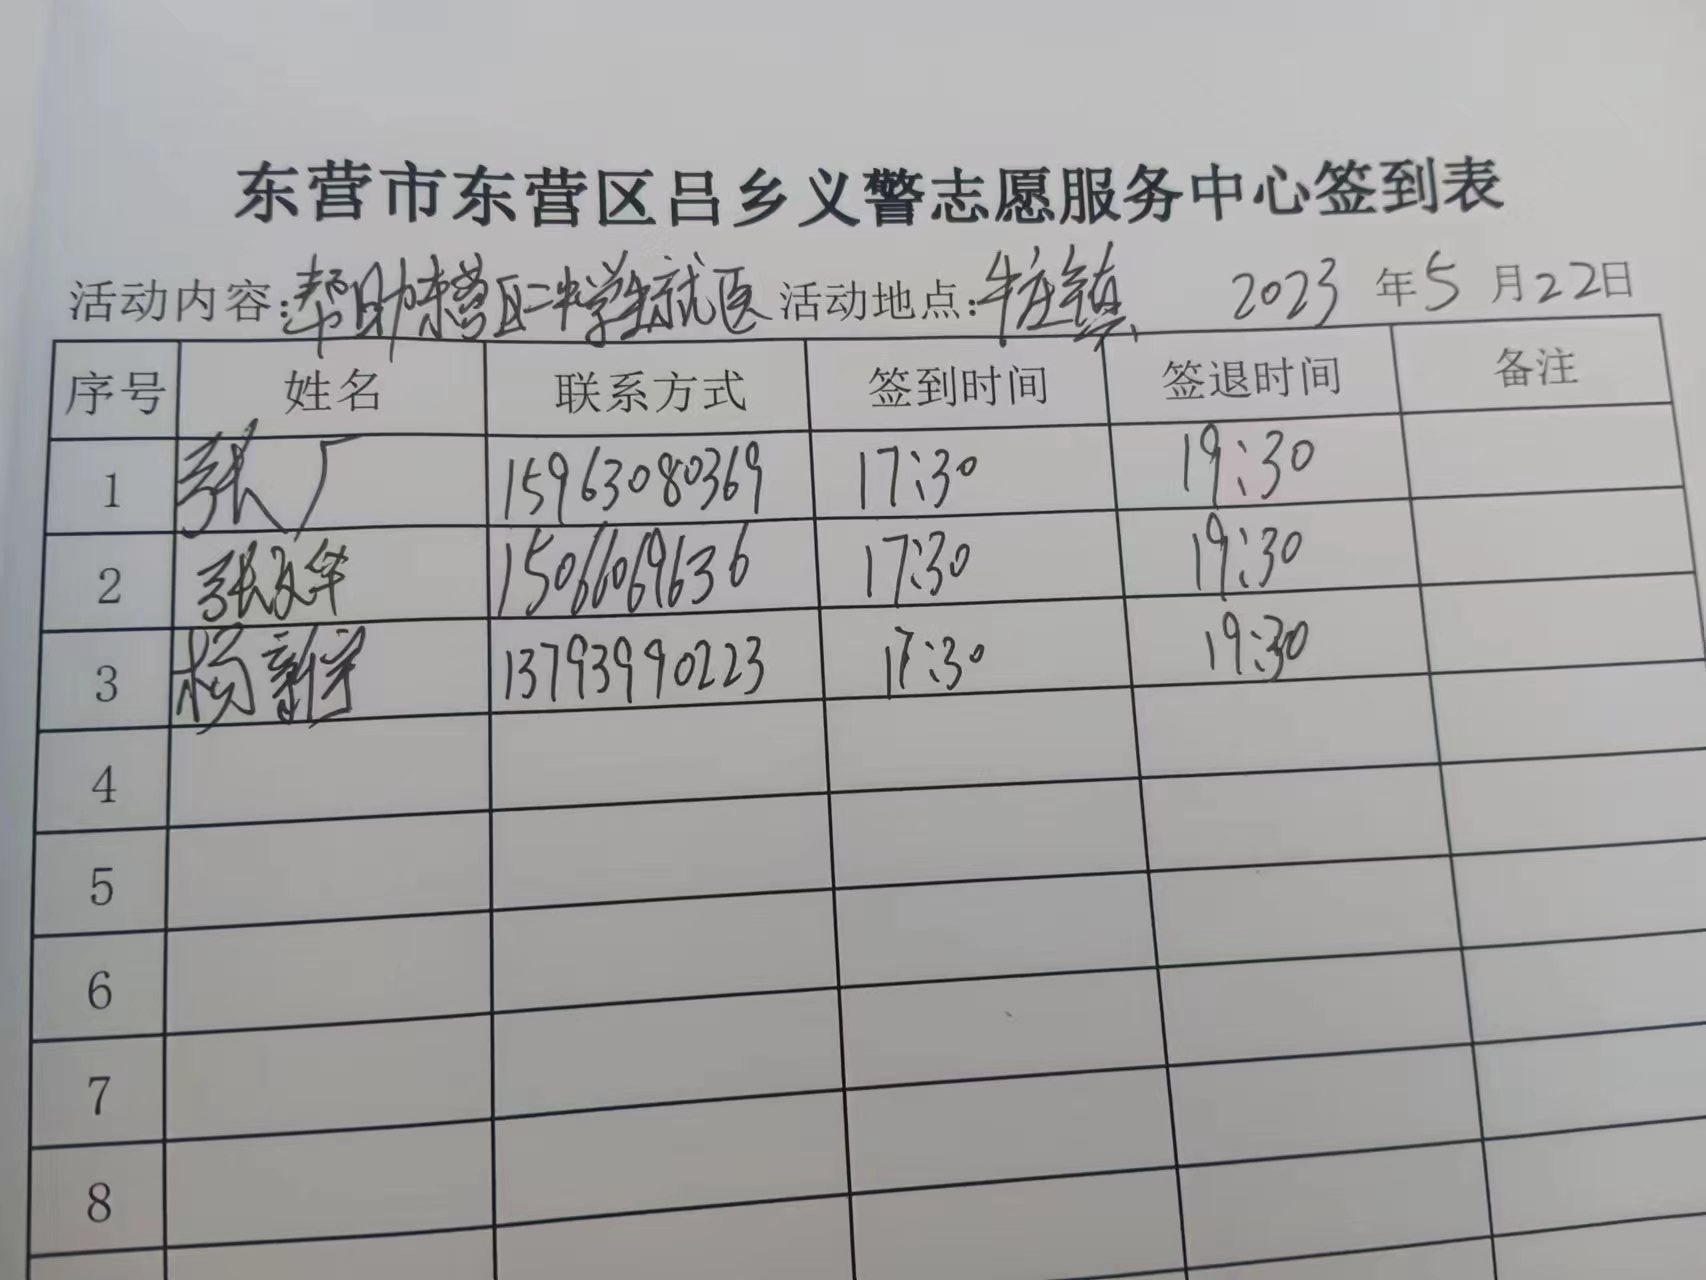 东营市东营区吕乡义警志愿服务中心签到表
活动内容:帮助东营区二中学生就医 活动地点:牛庄镇 2023年5月22日
序号 姓名 联系方式 签到时间 签退时间 备注
1 张广 15963080369 17:30 19:30
2 张文华 15066069636 17:30 19:30
3 杨新宇 13793990223 17:30 19:30
4
5
6
7
8